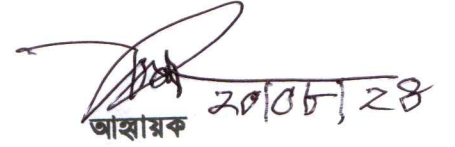 ২০/০৮/২৪
আহ্বায়ক